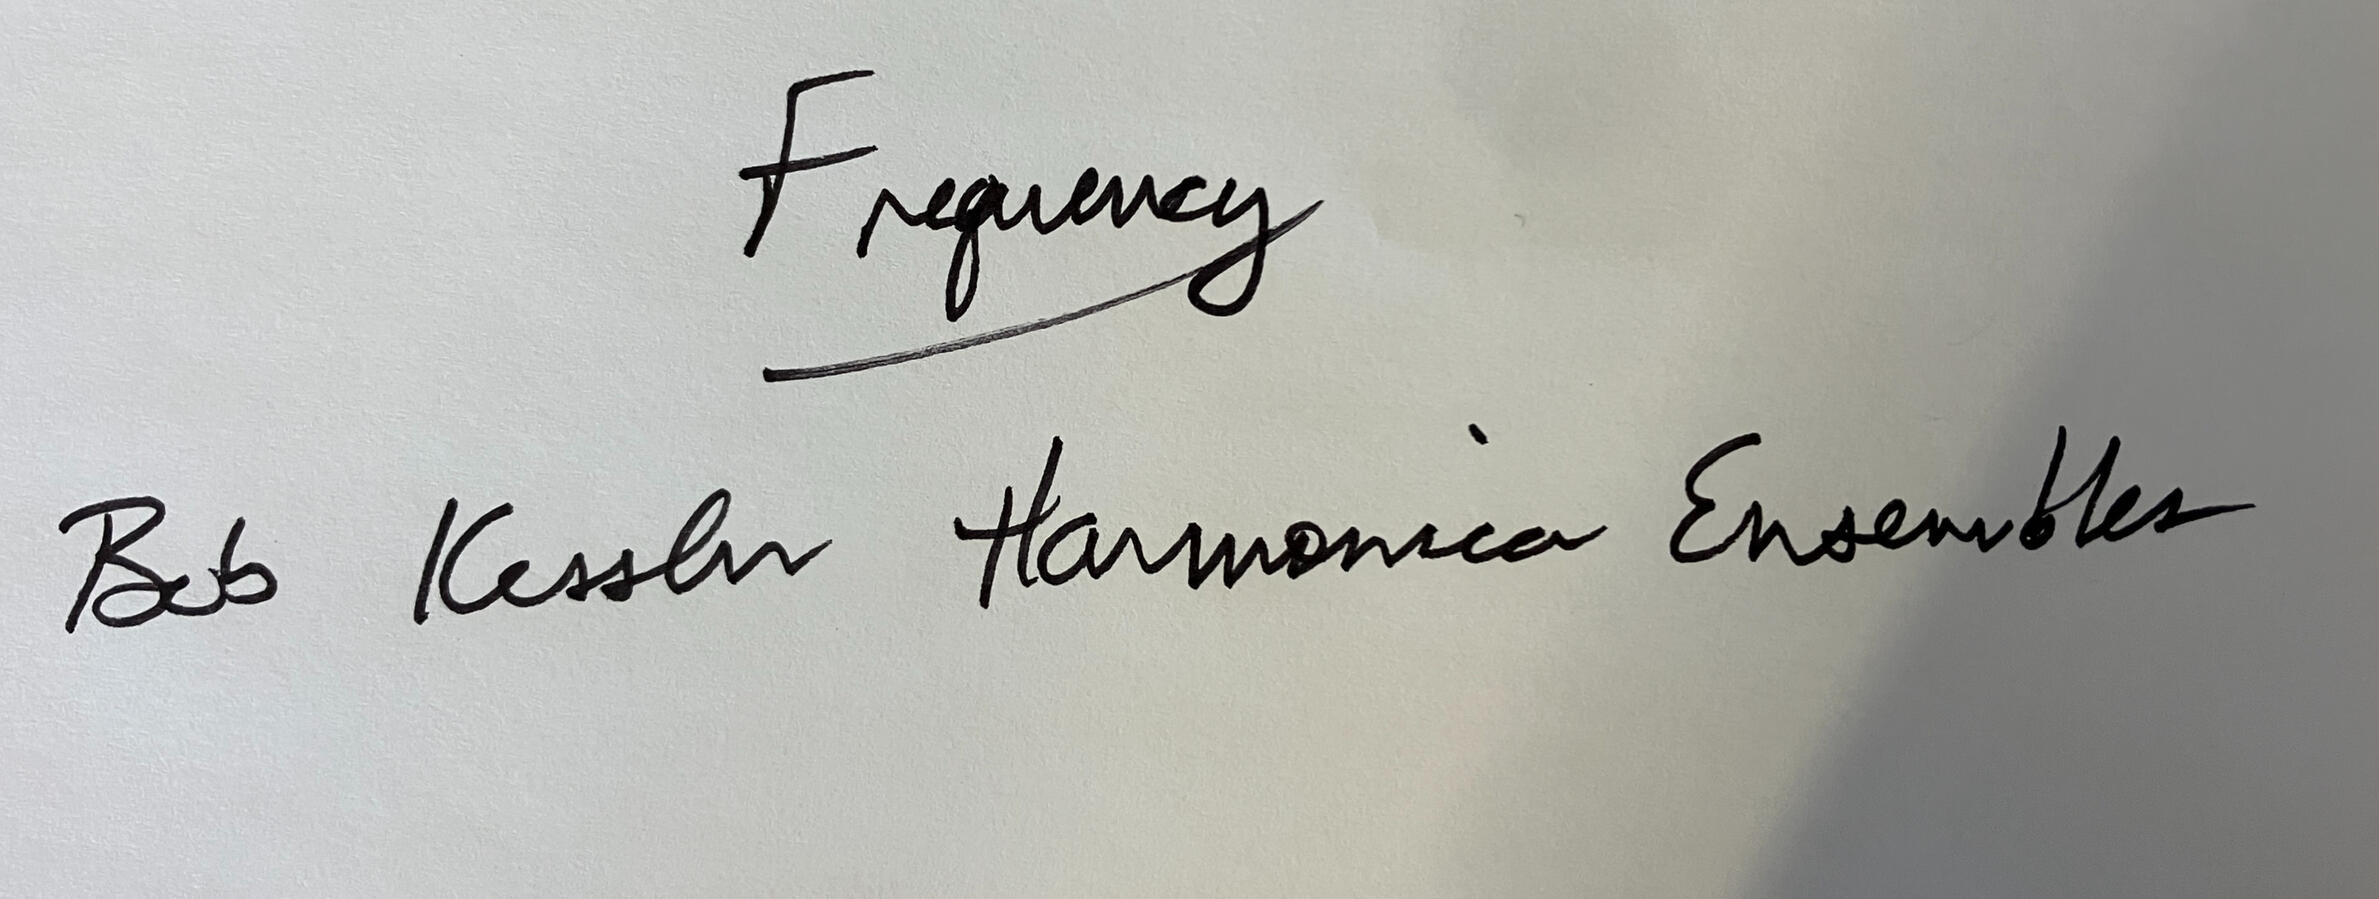 Frequency
Bob Kessler Harmonica Ensembles